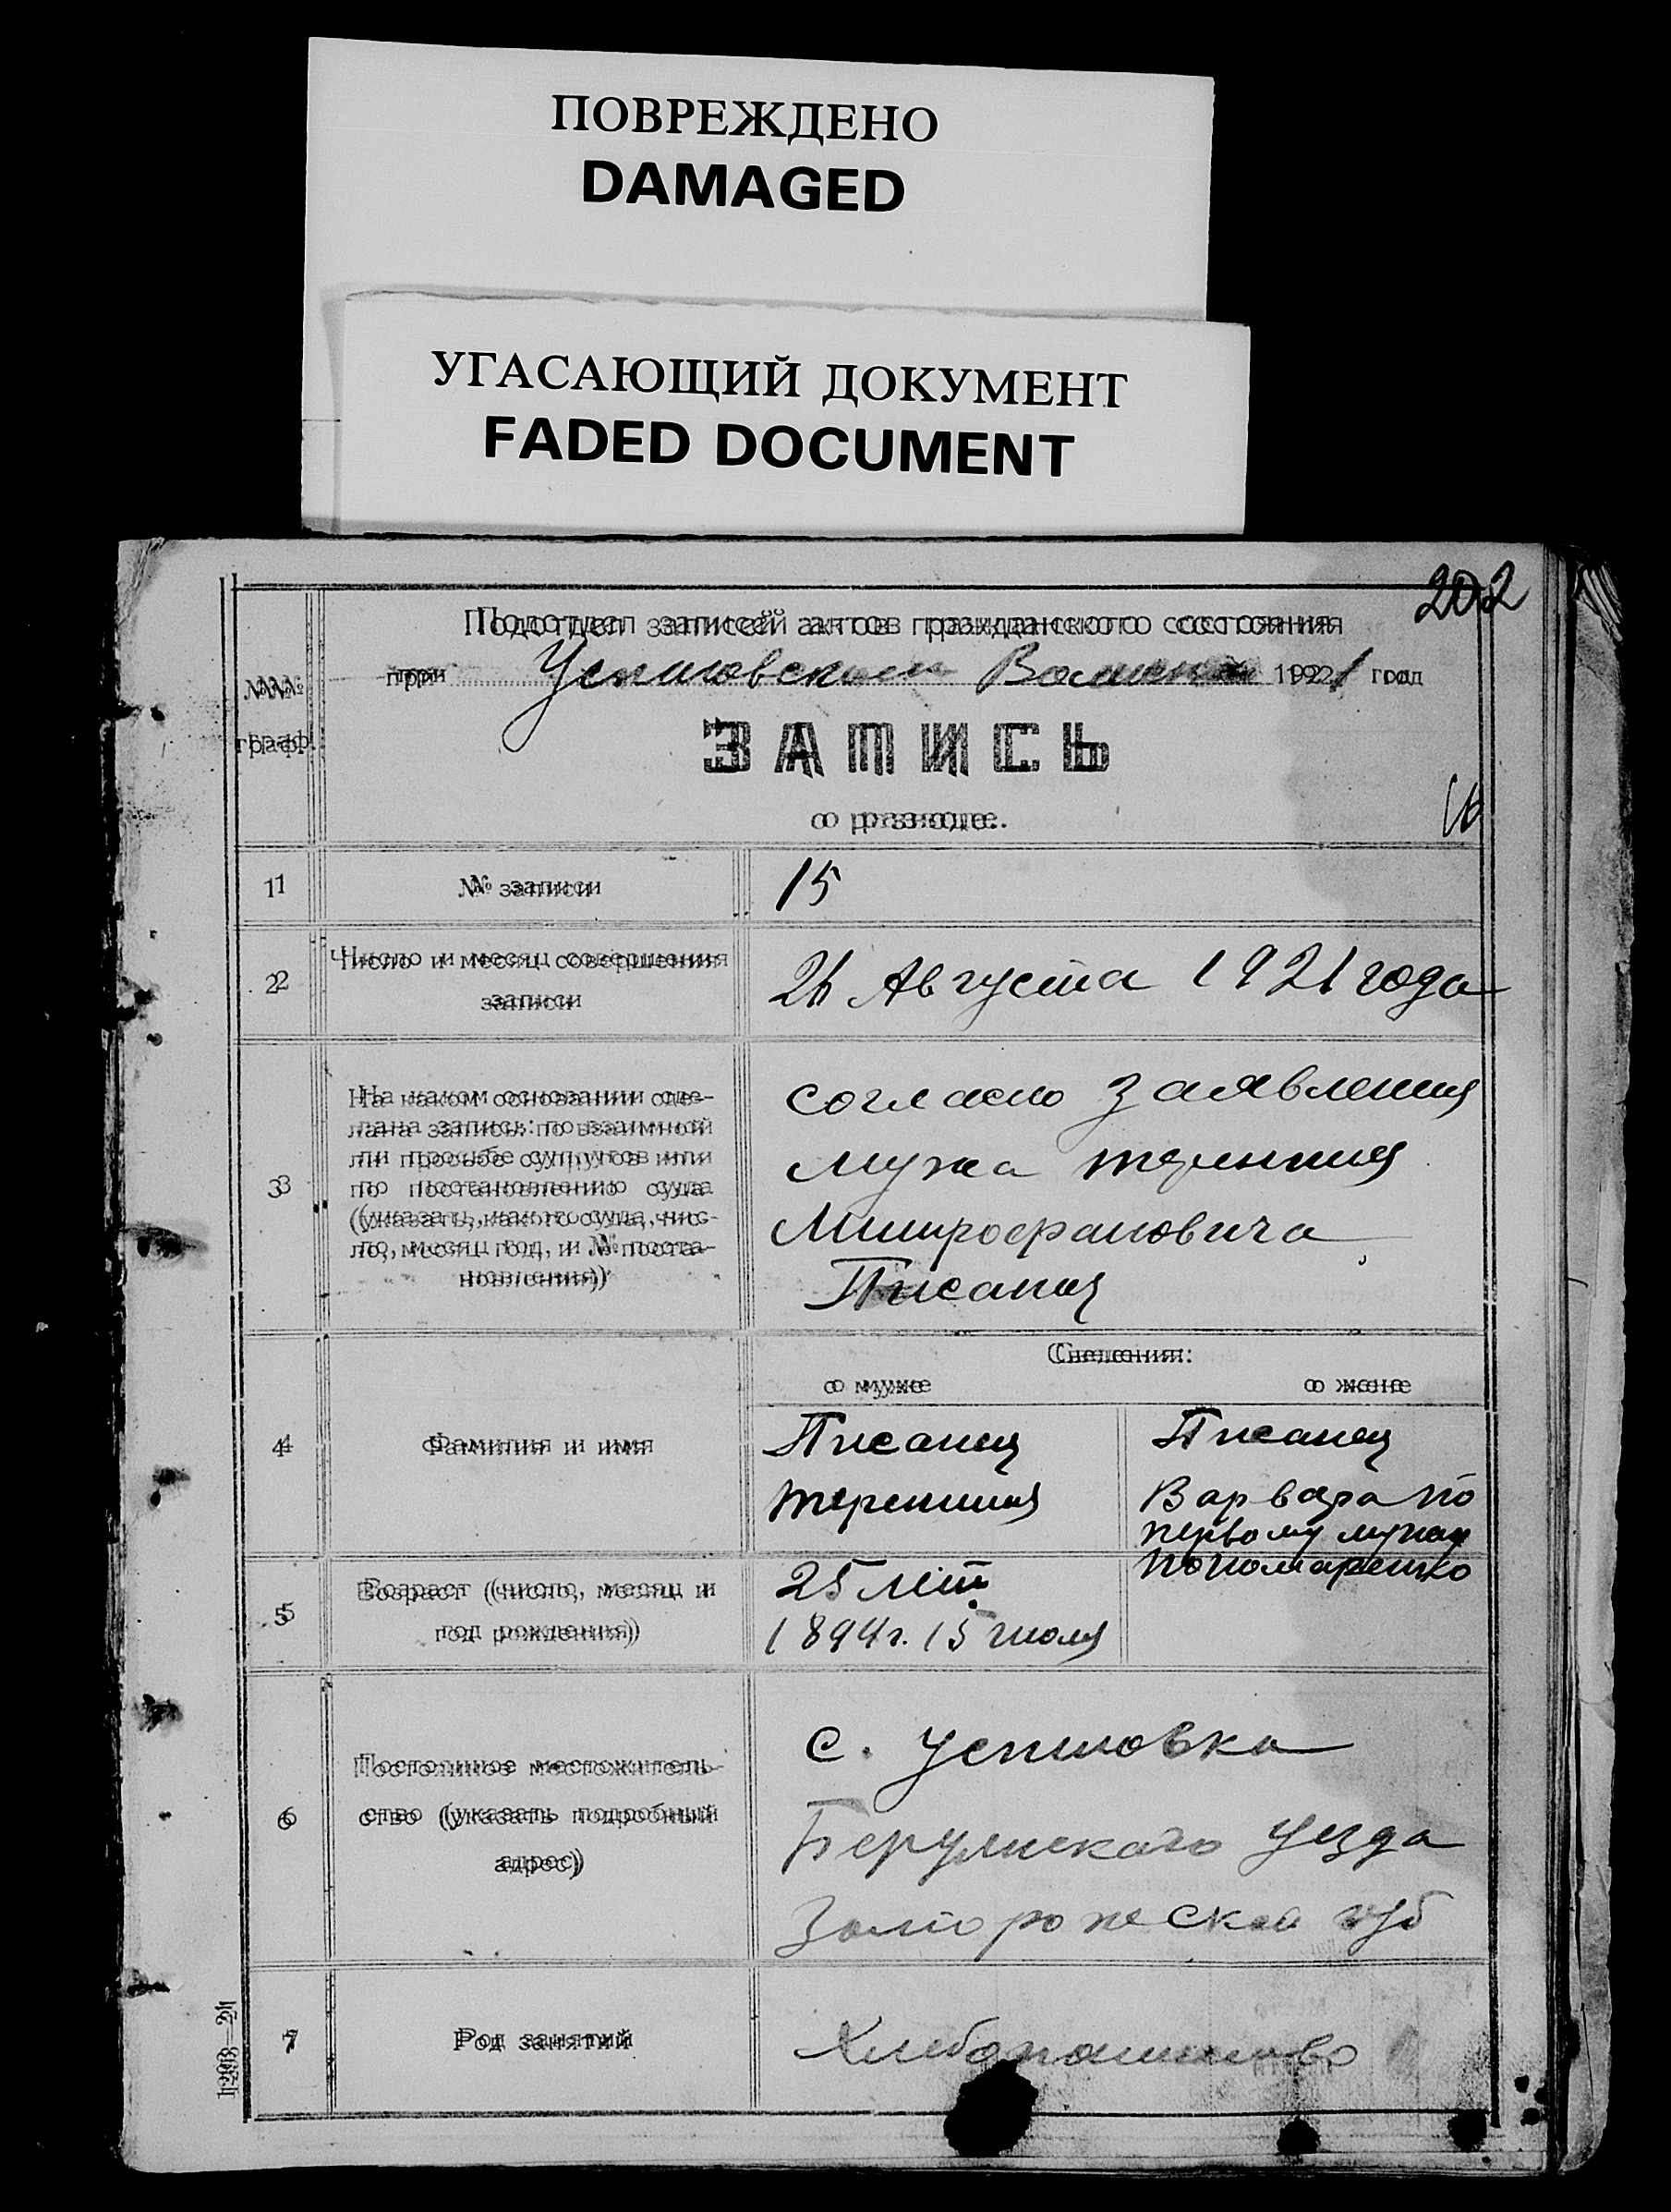 ПОВРЕЖДЕНО
DAMAGED
УГАСАЮЩИЙ ДОКУМЕНТ
FADED DOCUMENT
202
Подотдел записей актов гражданского состояния
при 1921 год
№№
граф.
ЗАПИСЬ
о разводе.
1 № записи 15
2 Число и месяц совершения
записи
Августа 1921 года
3 На каком основании сде-
лана запись: по взаимной
ли просьбе супругов или
по постановлению суда
(указать, какого суда, чис-
ло, месяц, год, и № поста-
новления)
согласно заявления
мужа терентия
Митрофановича
Писаная
Сведения:
о муже о жене
4 Фамилия и имя
Писаный Писаная
терентий Варвара по
первому мужу
пономаренко
5 Возраст (число, месяц и
год рождения)
25 лет.
1894 г. 15 июля
6 Постоянное местожитель-
ство (указать подробный
адрес)
с. успеновка
уезда
губ
7 Род занятий Хлебопашество
1298—21